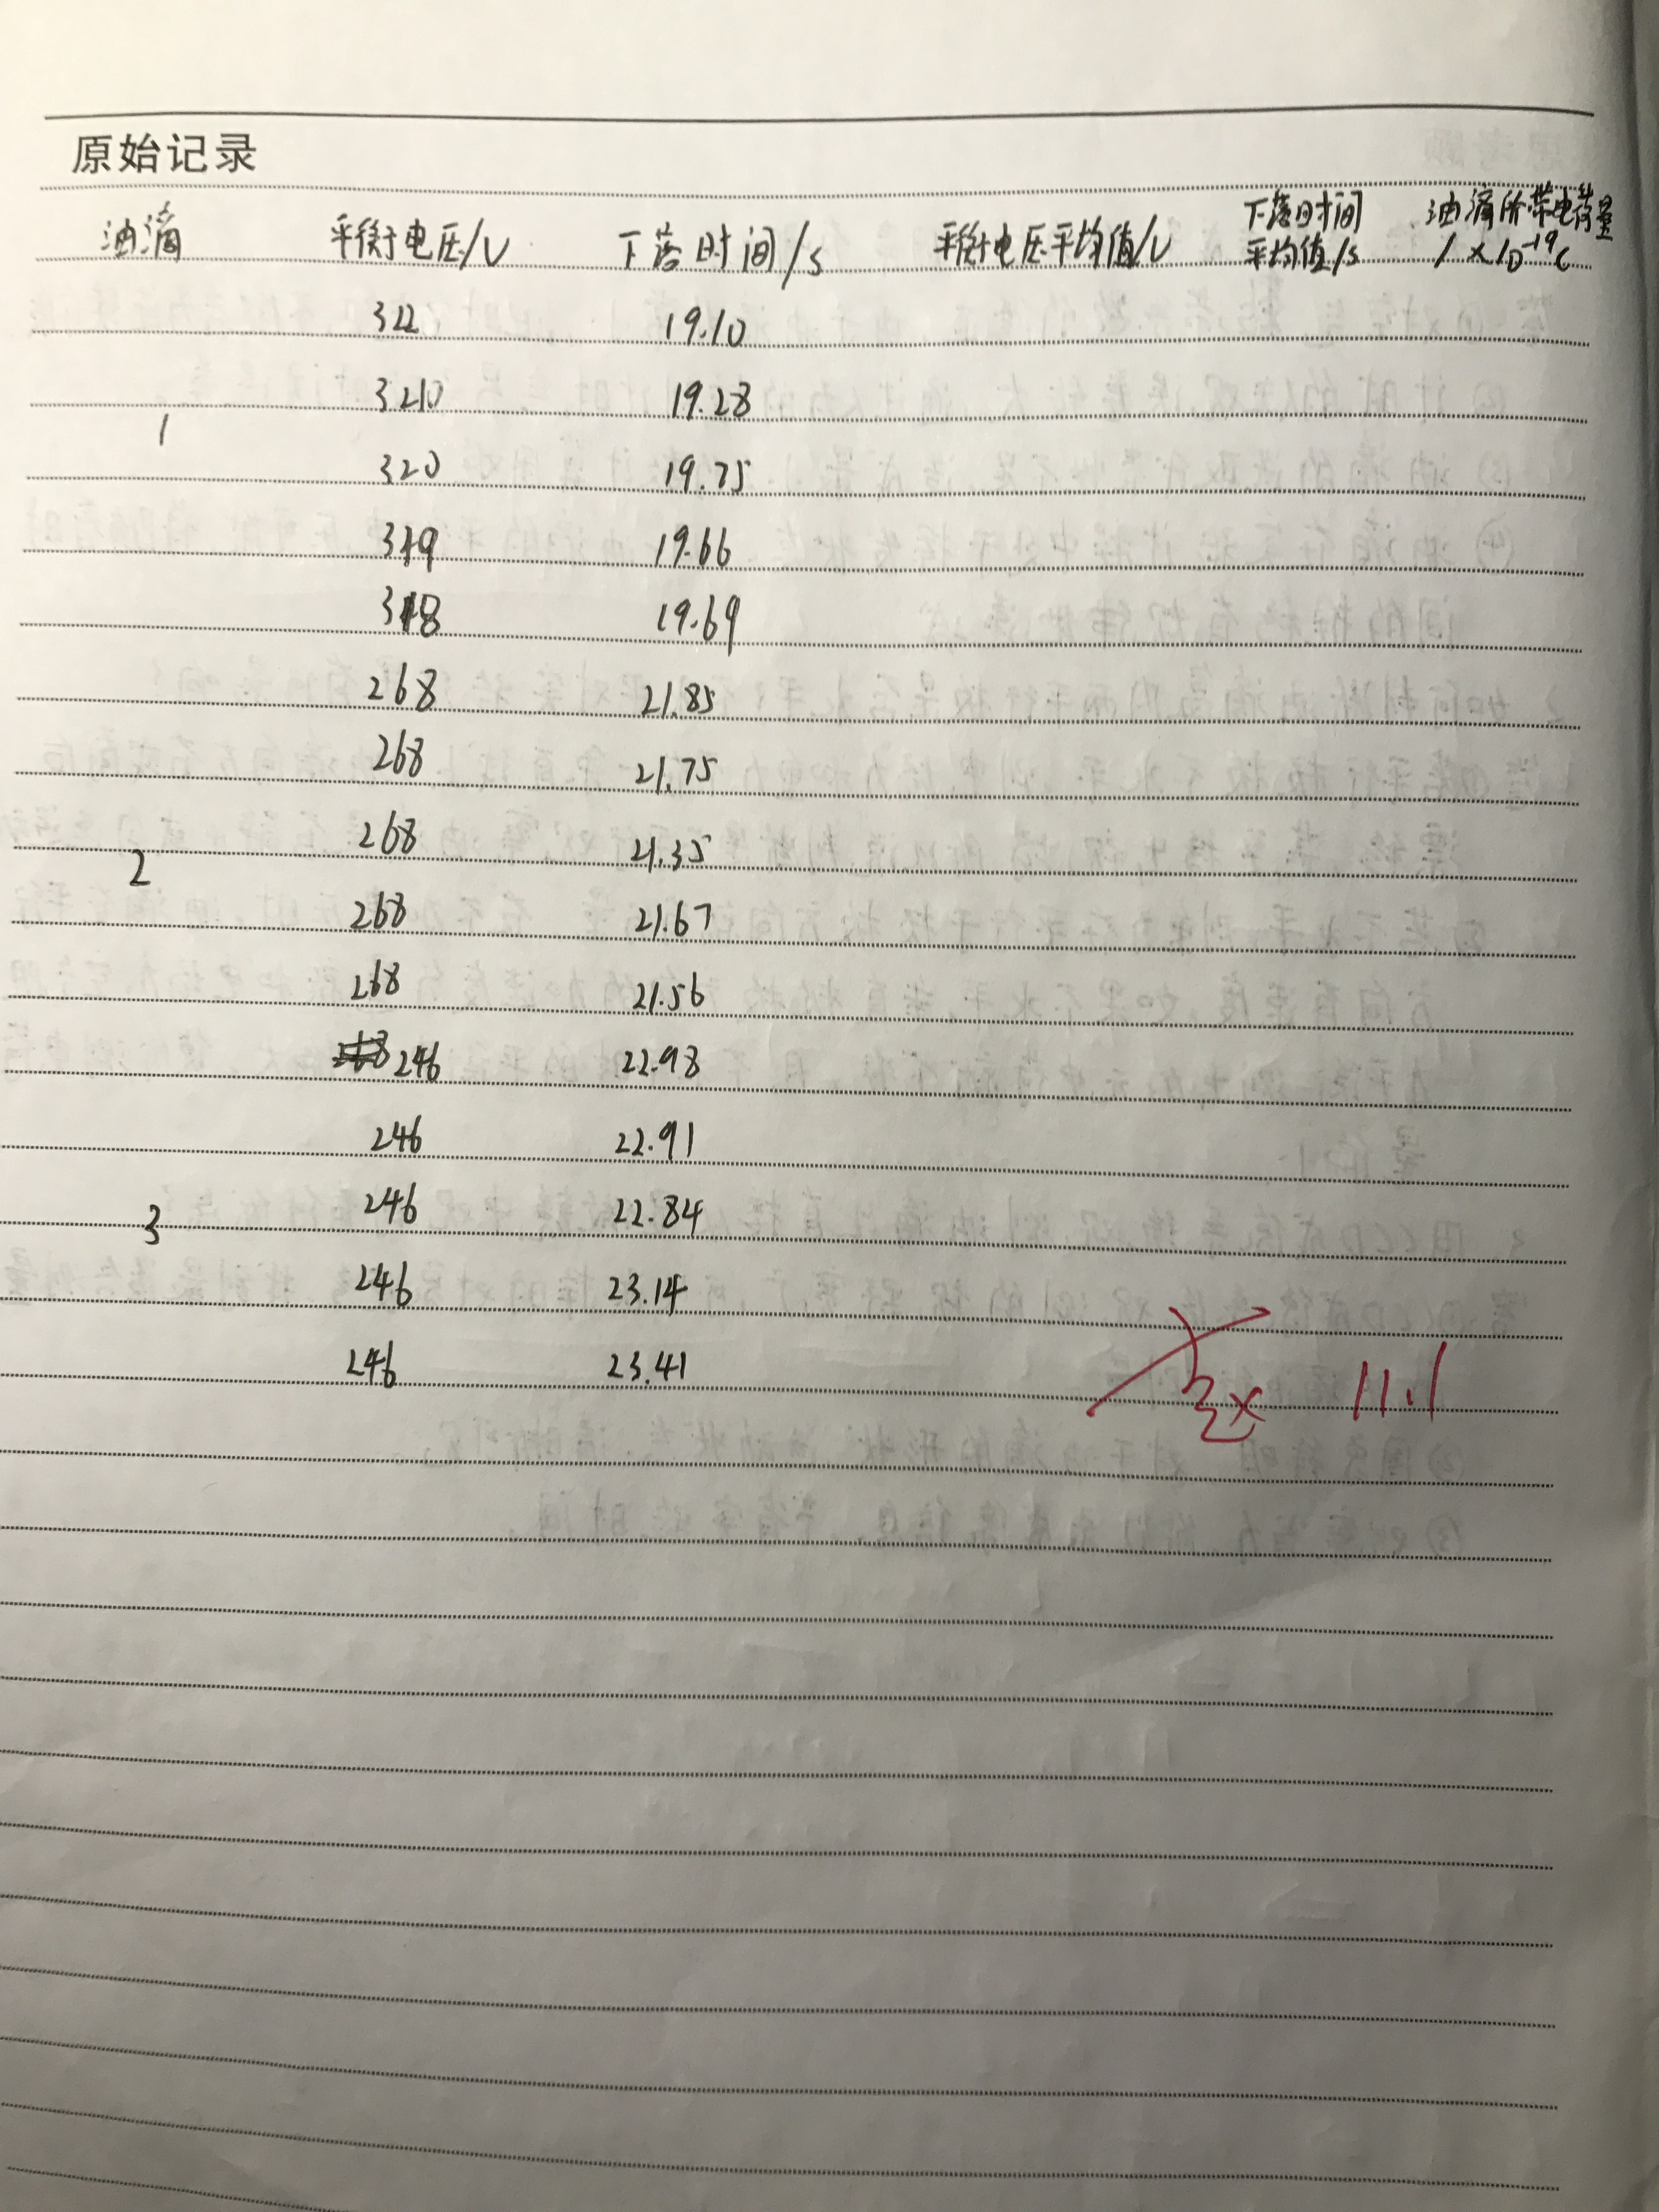 原始记录
油滴 平衡电压/V 下落时间/s 平衡电压平均值/V 下落时间平均值/s 油滴所带电荷量/×10⁻¹⁹C
322 19.10
320 19.28
1
320 19.75
319 19.66
318 19.69
268 21.85
268 21.75
268 21.35
2
268 21.67
268 21.56
246 22.98
246 22.91
246 22.84
3
246 23.14
246 23.41
11.1